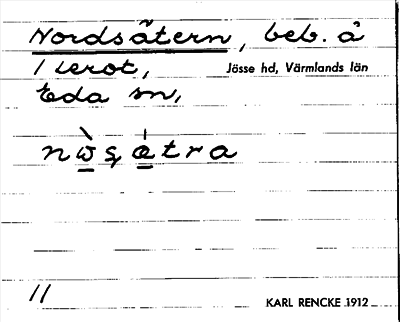 Nordsätern, beb. å
1 lerot, Jösse hd, Värmlands län
Eda sn,
11
KARL RENCKE 1912